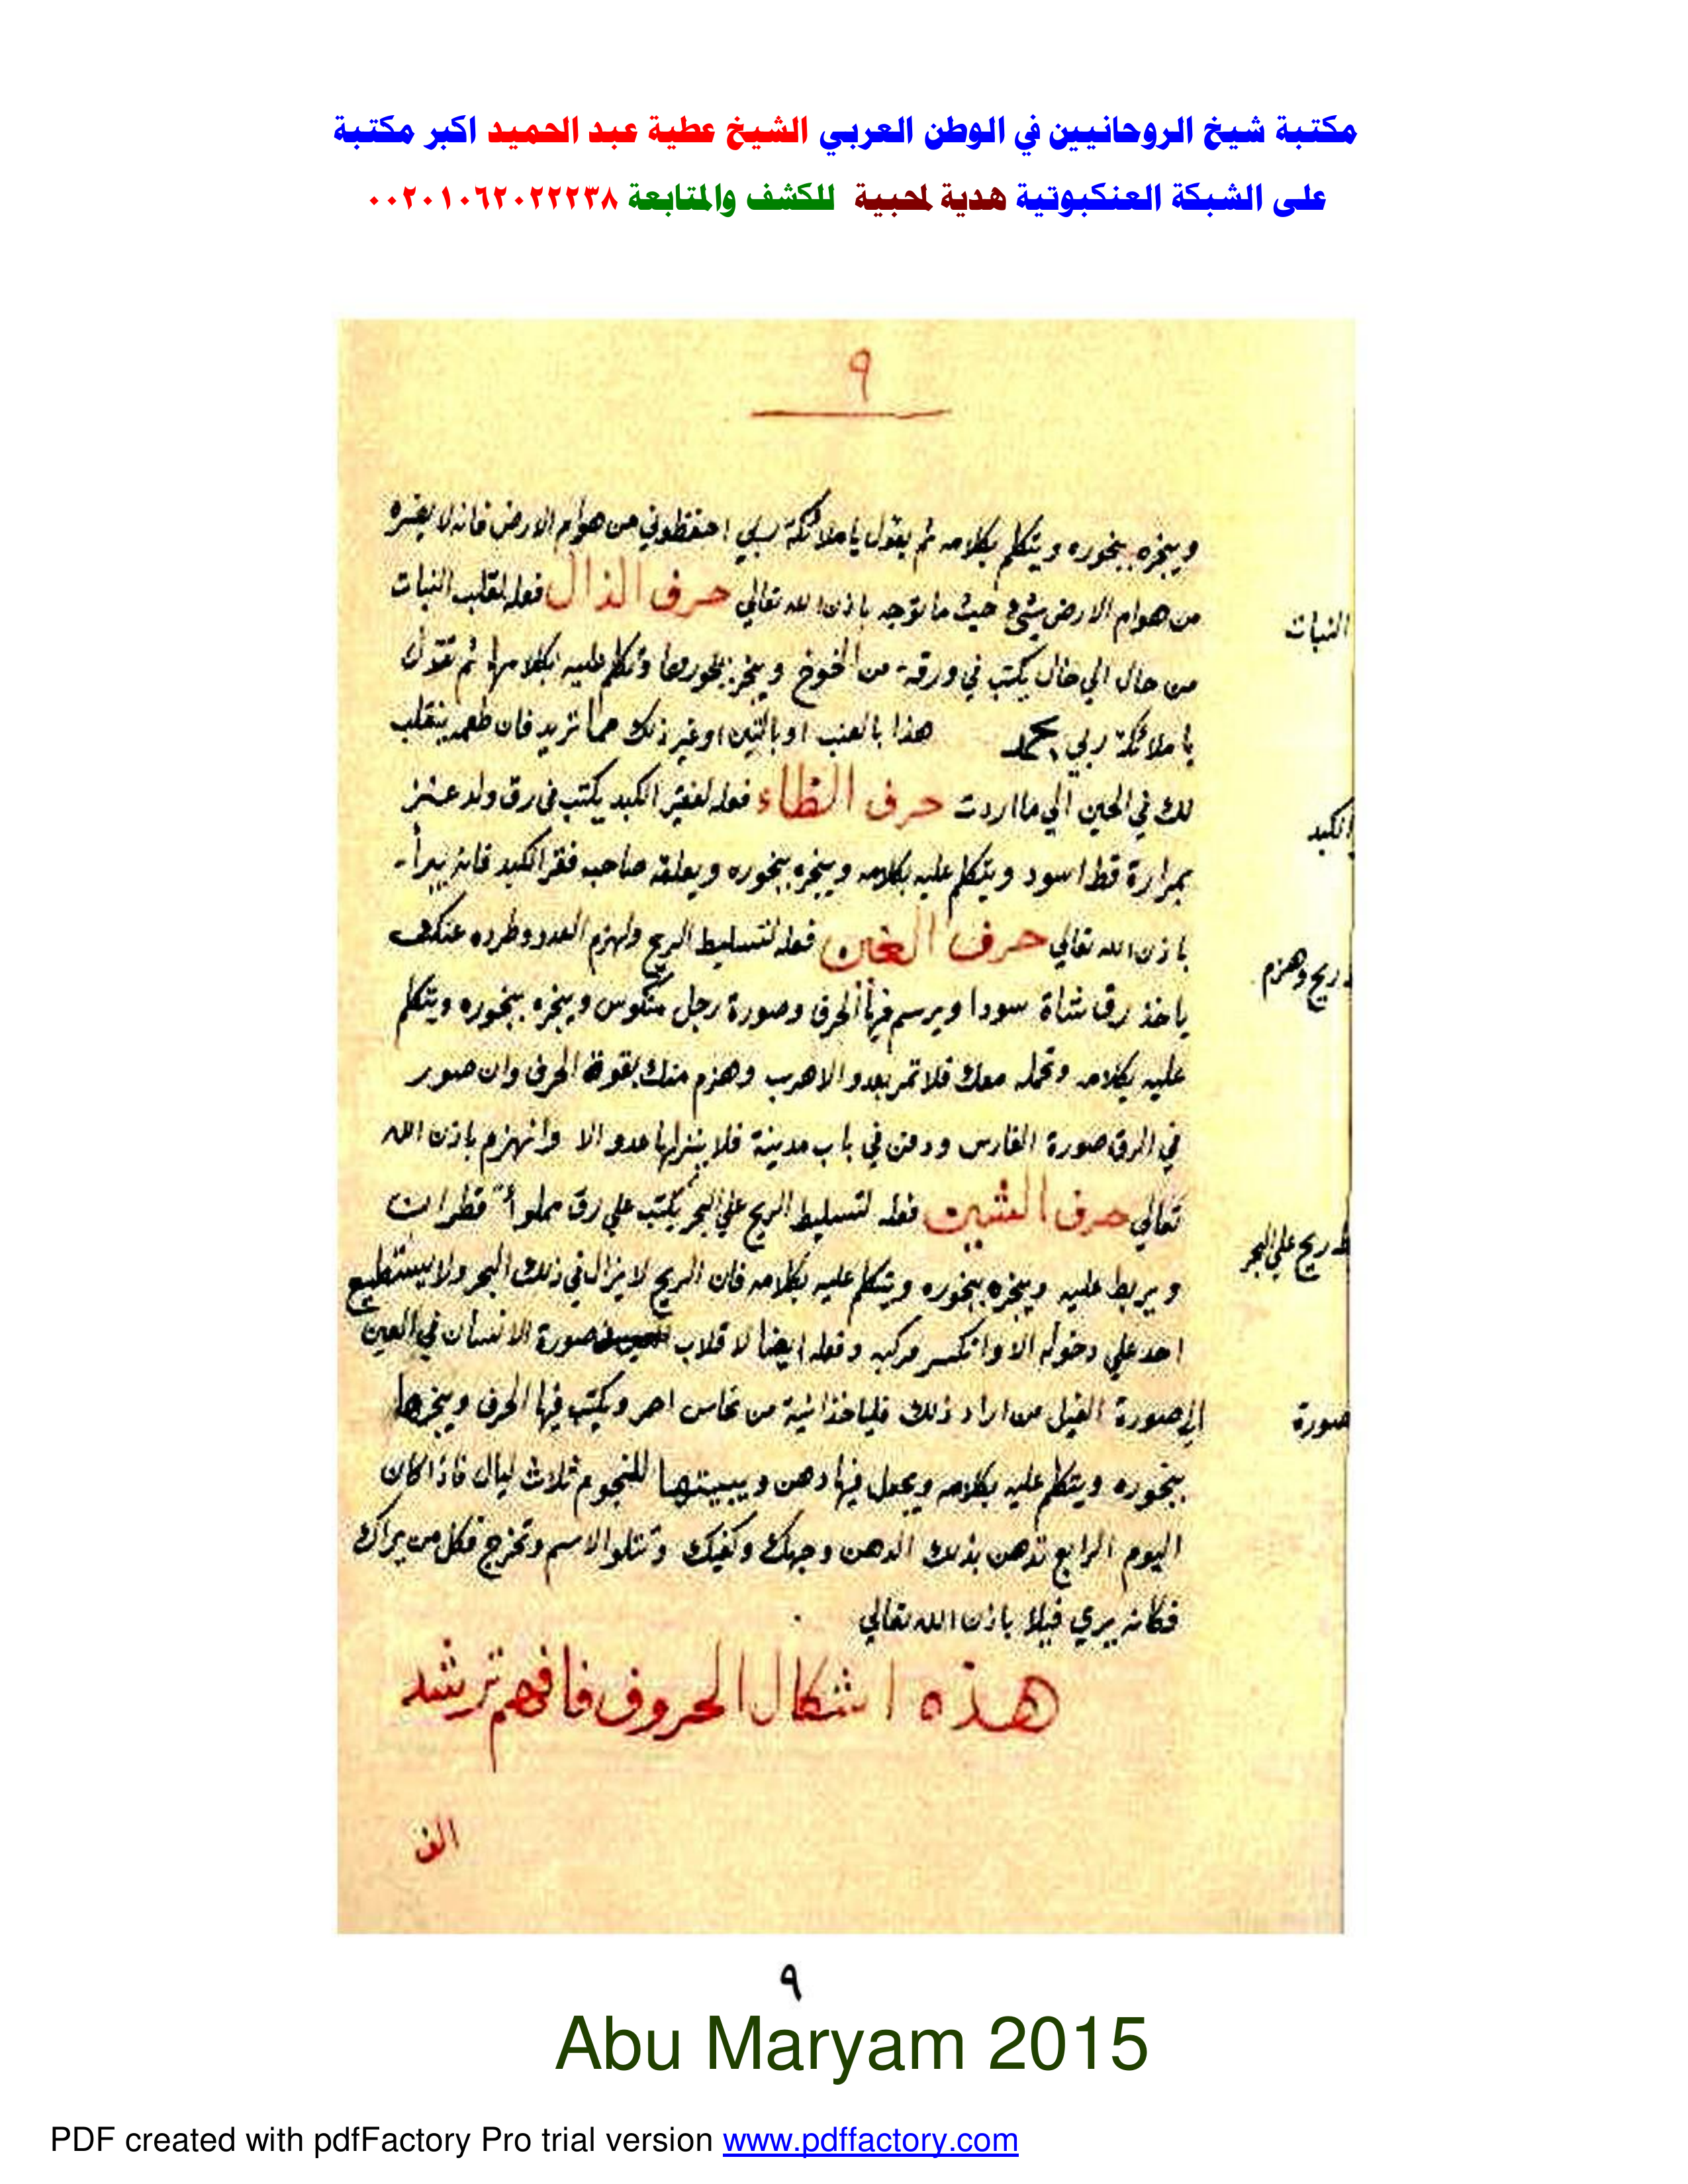 مكتبة شيخ الروحانيين في الوطن العربي الشيخ عطية عبد الحميد اكبر مكتبة
على الشبكة العنكبوتية هدية لمحبية للكشف والمتابعة ٠٠٢٠١٠٦٢٠٢٢٢٣٨
٩
ويبخره ببخوره ويتكلم بكلامه ثم يقول يا ملائكة ربي احفظوني من هوام الارض فانه لا يضره
من هوام الارض شيء حيث ما توجه باذن الله تعالي حرف الذال فعله لقلب النبات
النبات
من حال الي حال يكتب في ورقة من الخوخ ويبخر بخورها وتكلم عليه بكلامها ثم تقول
يا ملائكة ربي هذا بالعنب او بالتين اوغير ذلك مما تريد فان طعمه ينقلب
لك في الحين الي ما اردت حرف الظاء فعله لفقر الكبد يكتب في رق ولد عنز
الكبد
بمرارة قط اسود ويتكلم عليه بكلامه ويبخره ببخوره ويعلقه صاحب فقر الكبد فانه يبرأ
باذن الله تعالي حرف الغين فعله لتسليط الريح ولهزم العدو وطرده عنك
ريح وهزم
ياخذ رق شاة سودا ويرسم فيها الحرف وصورة رجل منكوس ويبخره ببخوره ويتكلم
عليه بكلامه وتحمله معك فلا تمر بعدو الا هرب وهزم منك بقوة الحرف وان صور
في الرق صورة الفارس ودفن في باب مدينة فلا ينزلها عدو الا وانهزم باذن الله
تعالي حرف الشين فعله لتسليط الريح علي البحر يكتب علي رق مملوأ قطران
ريح علي البحر
ويربط عليه ويبخره ببخوره ويتكلم عليه بكلامه فان الريح لا يزال في ذلك البحر ولا يستطيع
احد علي دخوله الا وانكسر مركبه وفعله ايضا لاقلاب صورة الانسان في العين
الي صورة الفيل من اراد ذلك فلياخذ انية من نحاس احمر ويكتب فيها الحرف ويبخرها
صورة
ببخوره ويتكلم عليه بكلامه ويجعل فيها دهن ويبيتها للنجوم ثلاث ليال فاذا كان
اليوم الرابع تدهن بذلك الدهن وجهك وكفيك وتتلو الاسم وتخرج فكل من يراك
فكانه يري فيلا باذن الله تعالي
هذه اشكال الحروف فافهم ترشد
الف
٩
Abu Maryam 2015
PDF created with pdfFactory Pro trial version www.pdffactory.com